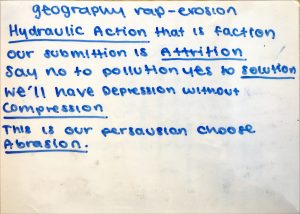 geography rap-erosion
Hydraulic Action that is faction
our submittion is Attrition
say no to pollution yes to solution
we'll have Depression without
Compression
This is our persausion choose
Abrasion.